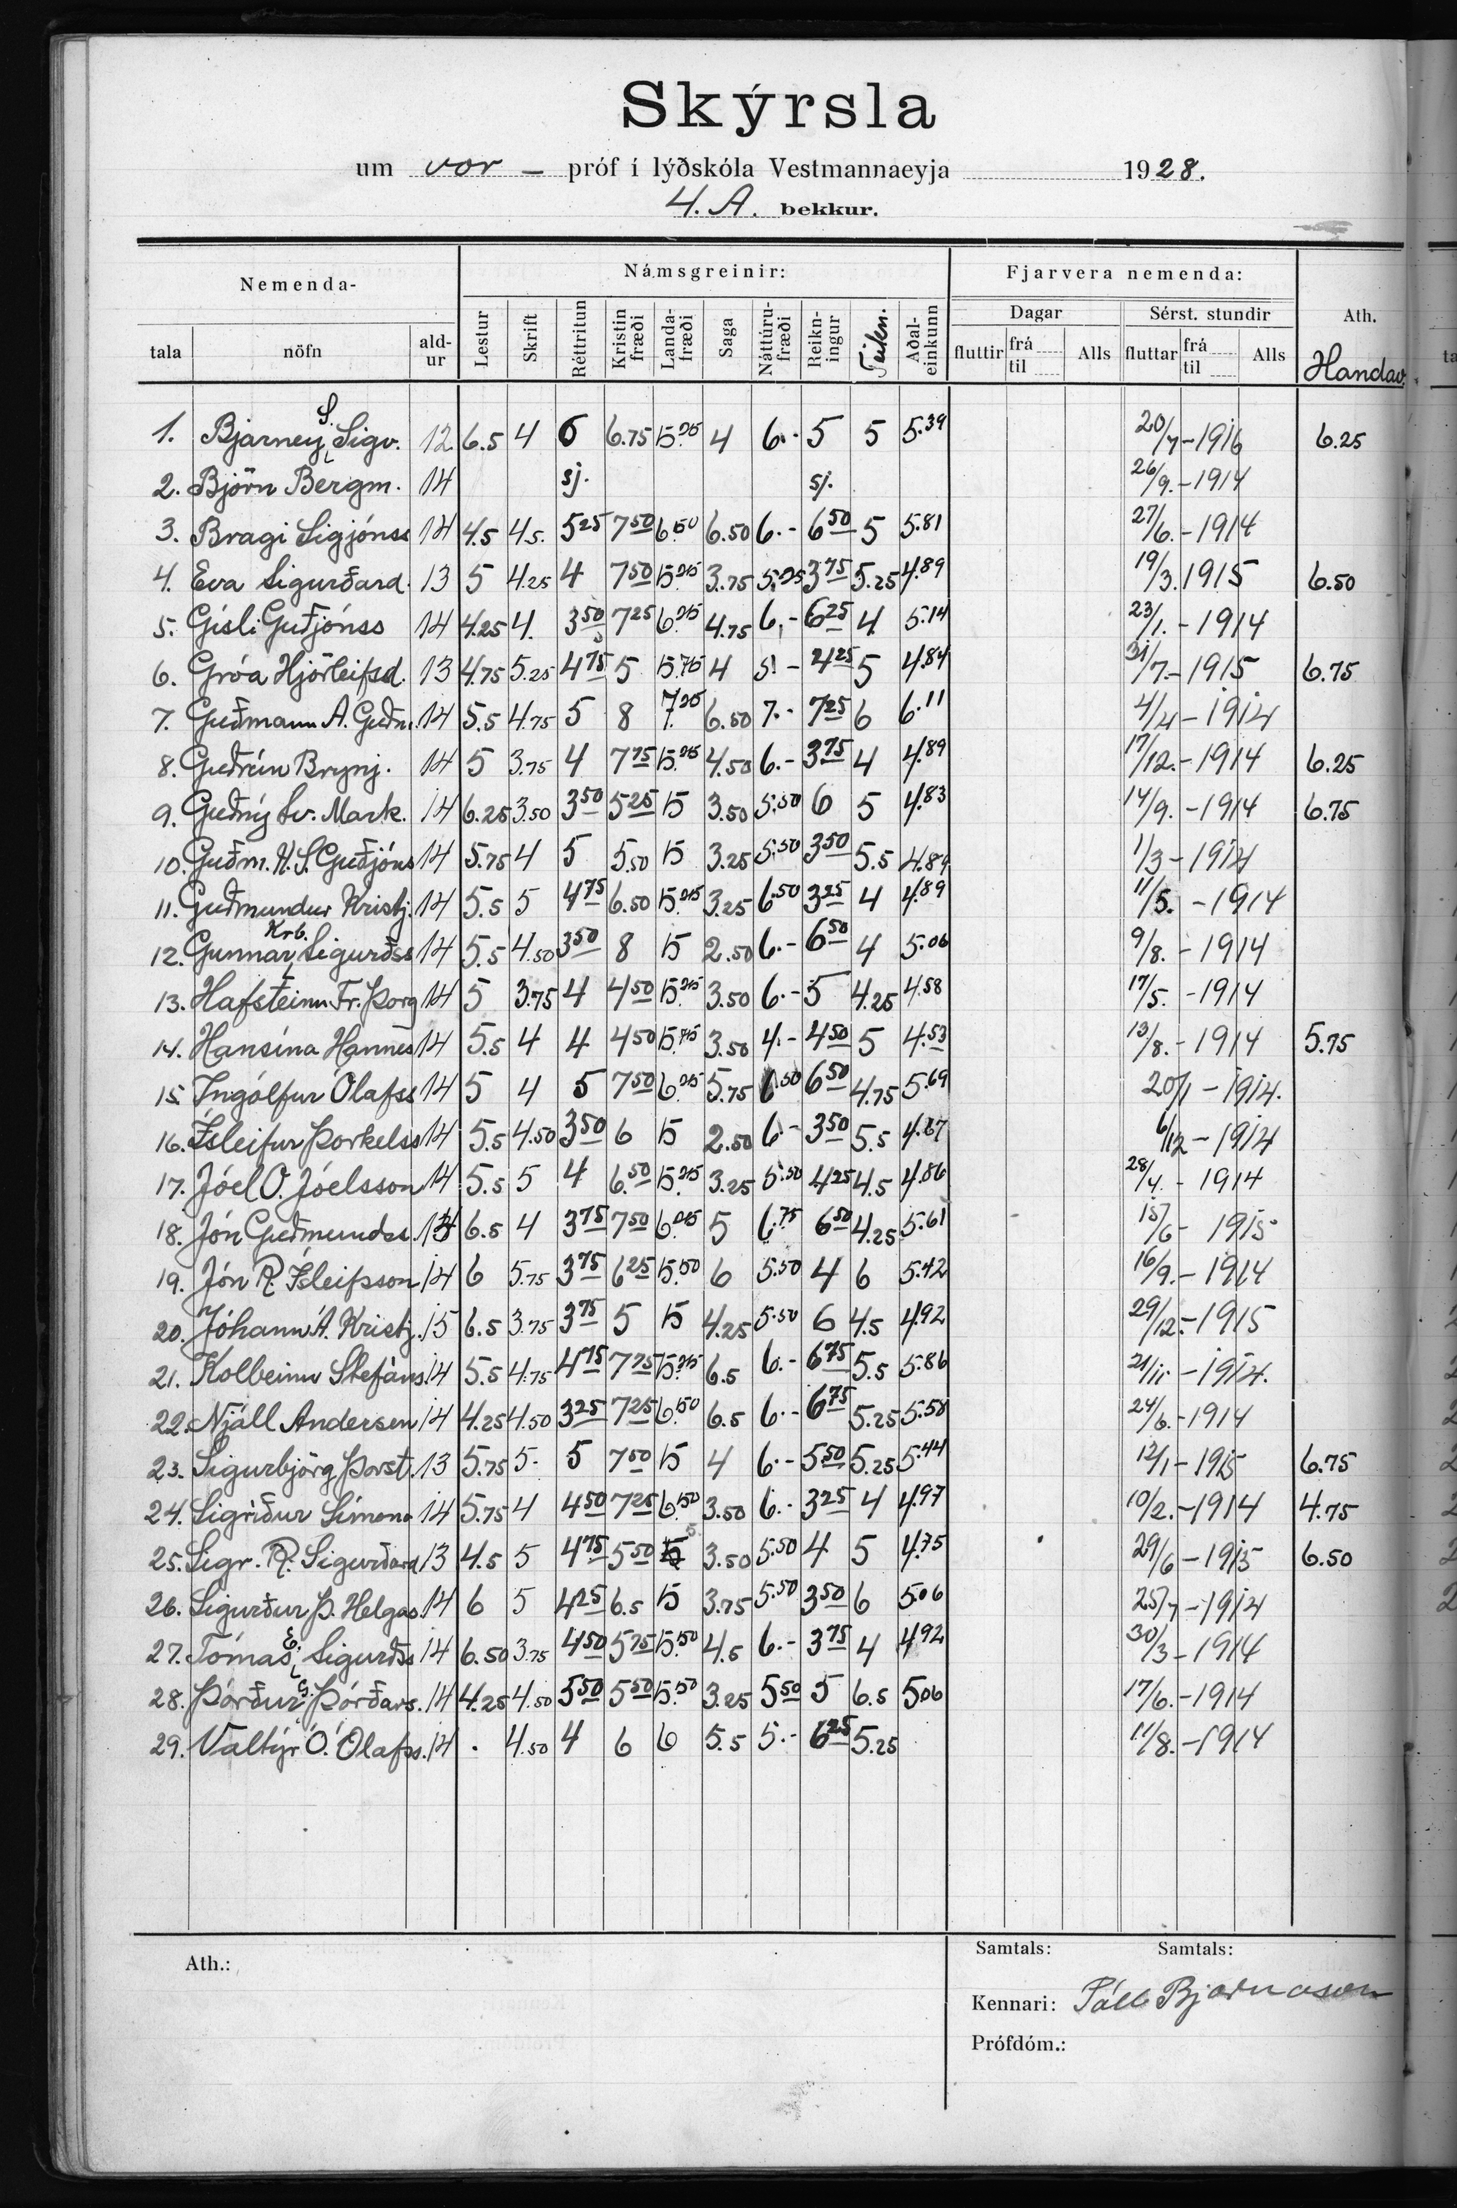 Skýrsla
um vor – próf í lýðskóla Vestmannaeyja 1928.
4. A. bekkur.
Nemenda- Námsgreinir: Fjarvera nemenda: Ath.
Dagar Sérst. stundir
tala nöfn ald-ur Lestur Skrift Réttritun Kristin fræði Landa-fræði Saga Náttúru-fræði Reikn-ingur Teikn. Aðal-einkunn fluttir frá til Alls fluttar frá til Alls Handav.
1. Bjarney S. Sigv. 12 6.5 4 6 6.75 5.25 4 6.- 5 5 5.39 20/7-1916 6.25
2. Björn Bergm. 14 sj. sj. 26/9.-1914
3. Bragi Sigjónss 14 4.5 4.5. 5 25 7 50 6.50 6.50 6.- 6 50 5 5.81 27/6.-1914
4. Eva Sigurðard. 13 5 4.25 4 7 50 5.25 3.75 5.25 3 75 5.25 4.89 19/3.1915 6.50
5. Gísli Guðjónss 14 4.25 4. 3 50 7 25 6.25 4.75 6.- 6 25 4 5.14 23/1.-1914
6. Gróa Hjörleifsd. 13 4.75 5.25 4 75 5 5.75 4 5.- 4 25 5 4.84 31/7.-1915 6.75
7. Guðmann A. Guðm. 14 5.5 4.75 5 8 7.25 6.50 7.- 7 25 6 6.11 4/4-1914
8. Guðrún Brynj. 14 5 3.75 4 7 75 5.25 4.50 6.- 3 75 4 4.89 17/12.-1914 6.25
9. Guðný Sv. Mark. 14 6.25 3.50 3 50 5 25 5 3.50 5.50 6 5 4.83 14/9.-1914 6.75
10. Guðm. K. S. Guðjóns 14 5.75 4 5 5.50 5 3.25 5.50 3 50 5.5 4.89 1/3-1914
11. Guðmundur Kristj. 14 5.5 5 4 75 6.50 5.25 3.25 6.50 3 25 4 4.89 11/5.-1914
12. Gunnar Krb. Sigurðss 14 5.5 4.50 3 50 8 5 2.50 6.- 6 50 4 5.06 9/8.-1914
13. Hafsteinn Fr. Þorg 14 5 3.75 4 4 50 5.25 3.50 6.- 5 4.25 4.58 17/5.-1914
14. Hansína Hannes 14 5.5 4 4 4 50 5.75 3.50 4.- 4 50 5 4.53 13/8.-1914 5.75
15. Ingólfur Ólafss 14 5 4 5 7 50 6.25 5.75 6.50 6 50 4.75 5.69 20/1-1914.
16. Ísleifur Þorkelss 14 5.5 4.50 3 50 6 5 2.50 6.- 3 50 5.5 4.67 6/12-1914
17. Jóel O. Jóelsson 14 5.5 5 4 6.50 5.25 3.25 5.50 4 25 4.5 4.86 28/4.-1914
18. Jón Guðmundss. 13 6.5 4 3 75 7 50 6.25 5 6.75 6 50 4.25 5.61 15/6-1915
19. Jón R. Ísleifsson 14 6 5.75 3 75 6 25 5.50 6 5.50 4 6 5.42 16/9.-1914
20. Jóhann Á. Kristj. 15 6.5 3.75 3 75 5 5 4.25 5.50 6 4.5 4.92 29/12.-1915
21. Kolbeinn Stefáns. 14 5.5 4.75 4 75 7 75 5.25 6.5 6.- 6 75 5.5 5.86 21/11-1914.
22. Njáll Andersen 14 4.25 4.50 3 25 7 25 6.50 6.5 6.- 6 75 5.25 5.58 24/6.-1914
23. Sigurbjörg Þorst. 13 5.75 5. 5 7 50 5 4 6.- 5 50 5.25 5.44 12/1-1915 6.75
24. Sigríður Símona 14 5.75 4 4 50 7 25 6.50 3.50 6.- 3 25 4 4.97 10/2.-1914 4.75
25. Sigr. R. Sigurðard 13 4.5 5 4 75 5 50 5 3.50 5.50 4 5 4.75 29/6-1915 6.50
26. Sigurður Þ. Helgas. 14 6 5 4 25 6.5 5 3.75 5.50 3 50 6 5.06 25/7-1914
27. Tómas E. Sigurðss 14 6.50 3.75 4 50 5 75 5.50 4.5 6.- 3 75 4 4.92 30/3-1914
28. Þórður G Þórðars. 14 4.25 4.50 5 50 5 50 5.50 3.25 5 50 5 6.5 5 06 17/6.-1914
29. Valtýr Ó. Ólafss. 14 . 4.50 4 6 6 5.5 5.- 6 25 5.25 11/8.-1914
Ath.: Samtals: Samtals:
Kennari: Páll Bjarnason
Prófdóm.: